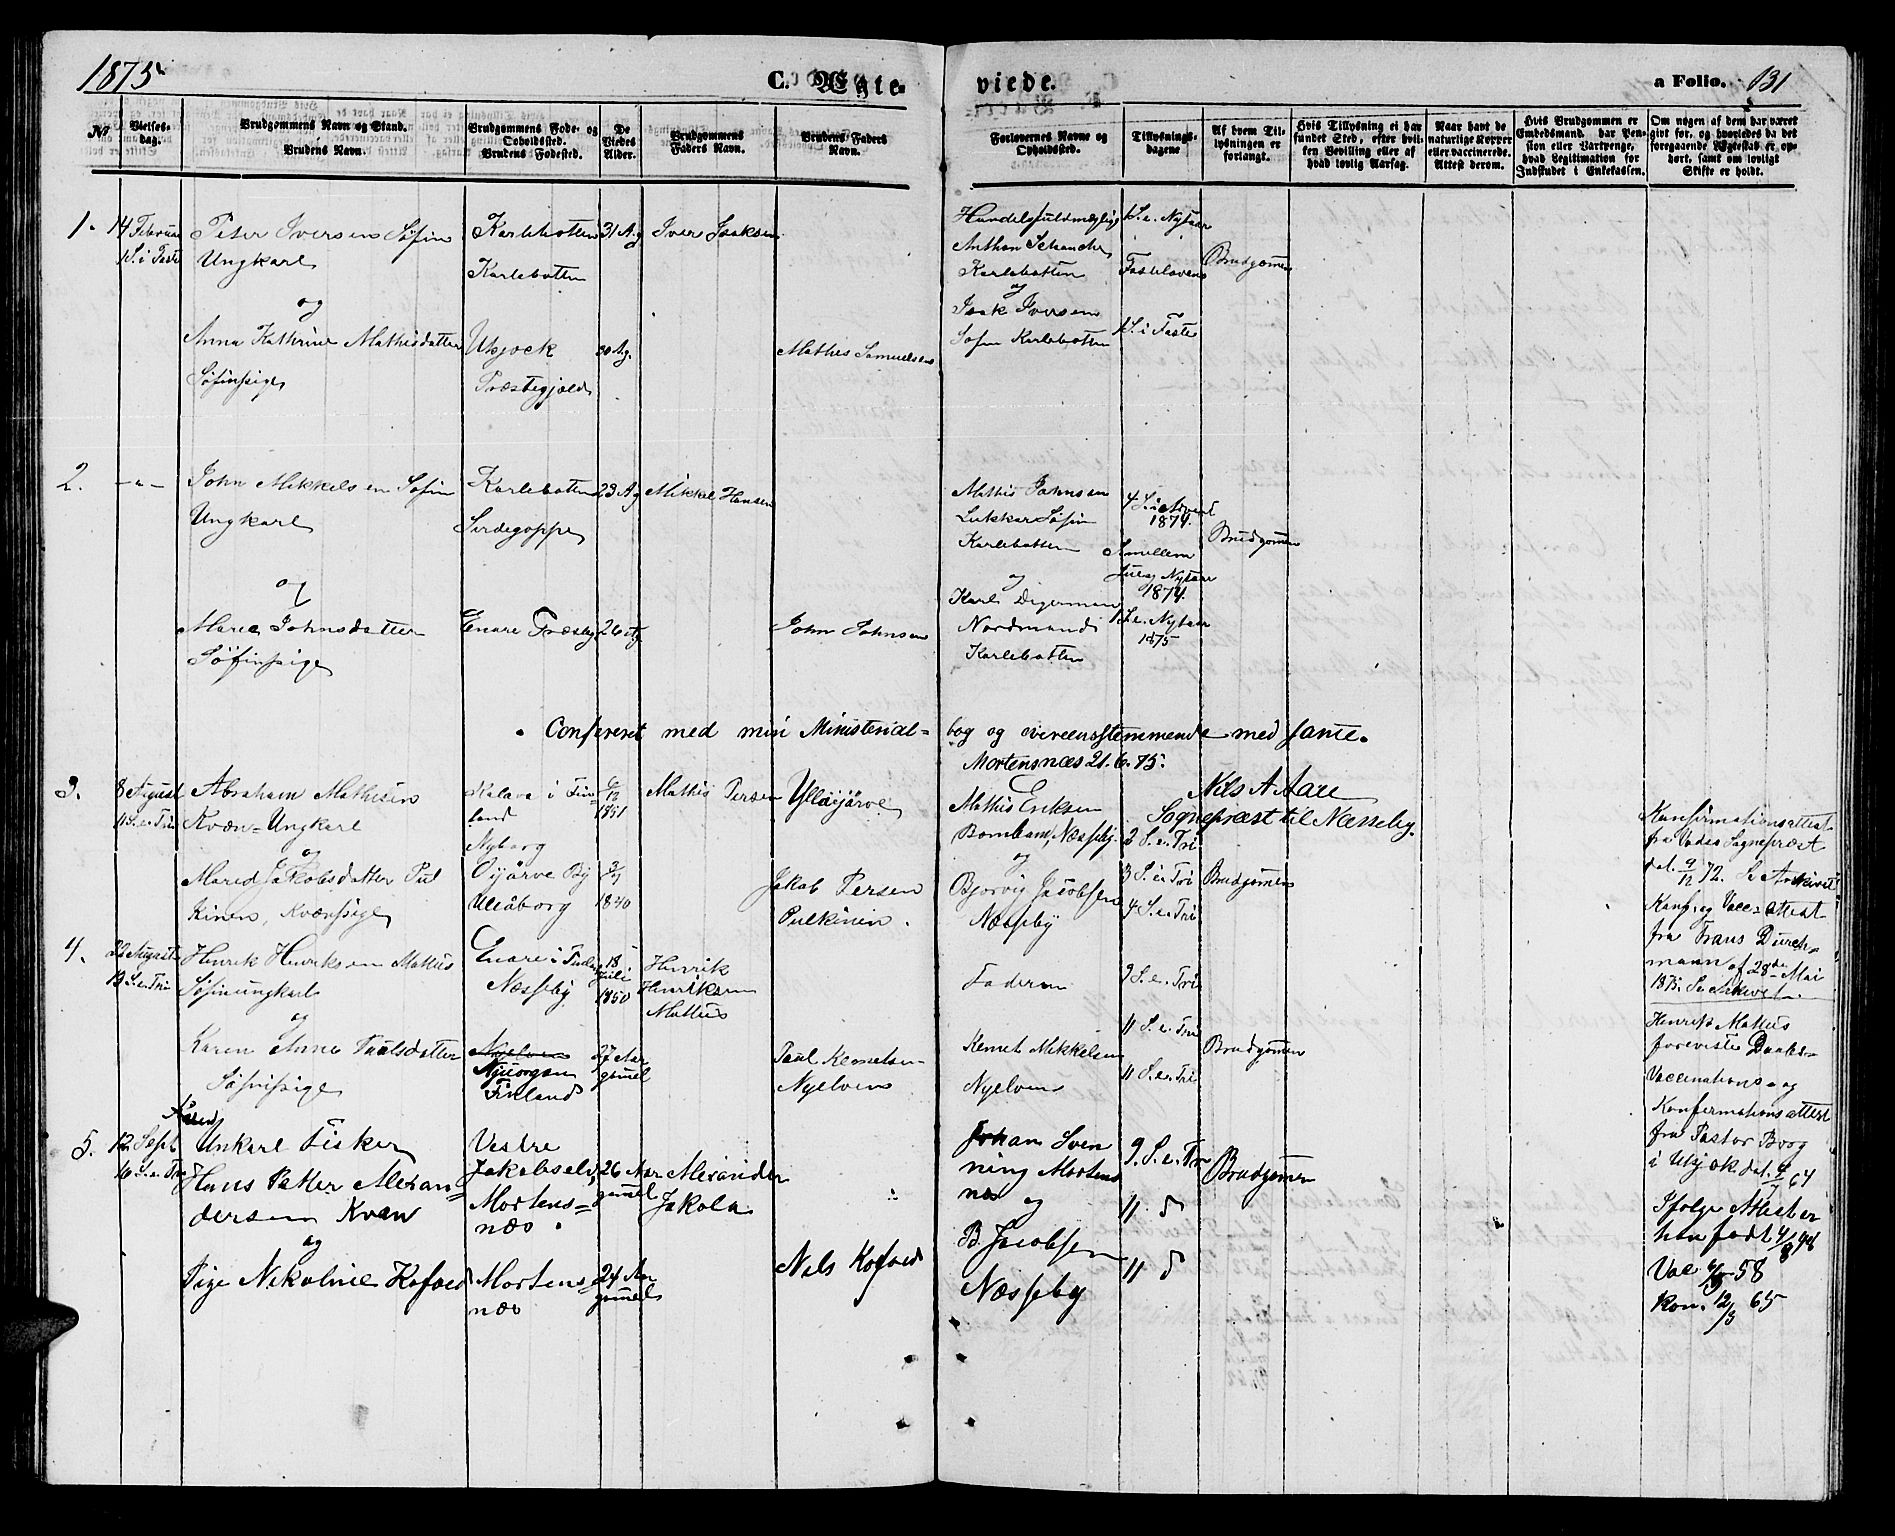 1875
C. Ægte-
viede.
a Folio. 131
No
Vielses-
dag.
Brudgommens Navn og Stand.
Brudens Navn.
Brudgommens Føde- og
Opholdssted.
Brudens Fødested.
De
Viedes
Alder.
Brudgommens
Faders Navn.
Brudens Faders
Navn.
Forlovernes Navne og
Opholdssted.
Tillysnings-
dagene
Af hvem Til-
lysningen er
forlangt.
Hvis Tillysning ei har
fundet Sted, efter hvil-
ken Bevilling eller af
hvad lovlig Aarsag.
Naar havt de
naturlige Kopper
eller vaccinerede.
Attest derom.
Hvis Brudgommen er
Embedsmand, har Pen-
sion eller Vartpenge,
hvad Legitimation for
Indskudet i Enkekassen.
Om nogen af dem har været
gift før, og hvorledes da det
foregaaende Ægteskab er op-
hørt, samt om lovligt
Skifte er holdt.
1.
14 Februar
1 S. i Faste
Peter Iversen Søfin
Ungkarl
og
Anna Kathrine Mathisdatter
Søfinpige
Karlebotten
Karlebotten
Utsjock
Præstegjeld
31 A.g
20 A.g.
Iver Isaksen
Mathis Samuelsen
Handelsfuldmægtig
Anthon Schanche
Karlebotten
og
Isak Iversen
Søfin Karlebotten
1 S. e. Nytaar
Fastelavens
1 S. i Faste
Brudgommen
2.
- " -
John Mikkelsen Søfin
Ungkarl
og
Marie Johnsdatter
Søfinpige
Karlebotten
Sirdegoppe
Enare Præsteg
23 A.g
26 A.g
Mikkel Hansen
John Johnsen
Mathis Johnsen
Lukkar Søfin
Karlebotten
og
Karl Digerman
Nordmand i
Karlebotten
4 S. i Advent
1874.
S. mellem
Jul og Nytaar
1874.
1 S. e. Nytaar
1875
Brudgommen
Confereret med min Ministerial-
bog og overeensstemmende med samme.
Mortensnæs 21. 6. 75.
Nils A Aare
Sognepræst til Næsseby.
3.
8 August
11 S. e. Tri
Abraham Mathisen
Kvæn-Ungkarl
og
Mared Jakobsdatter Pul
kinen, Kvænpige
Kalava i Fin-
land
Nyborg
Oijärve By
Uleåborg
6/12
1851
3/1
1840
Mathis Persen
Ylläijärve
Jakob Persen
Pulkinen.
Mathis Eriksen
Bomban, Næsseby.
og
Bjorvig Jacobsen
Næsseby
2 S. e. Tri
3 S. e. Tri
4 S. e. Tri
Brudgommen
Konfirmationsattest
fra Vadsø Sognepræst
dat. 9/12 72. Se Arkivet
Konf. og Vacc. attest
fra Frans Durch-
mann af 28de Mai
1875. Se Arkivet.
4.
22 August
13 S. e. Tri
Henrik Henriksen Mattus
Søfinungkarl
og
Karen Anna Paulsdatter
Søfinpige
Enare i Finland
Næsseby
Nyelven
Njuorgam
Finland
18
Juli
1850
27 Aar
gamel
Henrik
Henriksen
Mattus
Paul Kemetsen
Nyelven
Faderen
Kemet Mikkelsen
Nyelven
9 S. e. Tri
11 S. e. Tri
11 S. e. Tri
Brudgommen
Henrik Mattus
foreviste Daabs-
Vaccinations- og
Konfirmationsattest
fra Pastor Borg
i Utsjok dat. 4/7 67
5.
12 Sept
16 S. e. Tri
Kvæn
Unkarl Fisker
Hans Petter Alexan-
dersen Kvæn
og
Pige Nikoline Kofoed
Vestre
Jakobselv,
Mortens=
næs
Mortens=
næs
26 Aar
gamel
24 Aar
gamel
Alexander
Jakola
Nels Kofoed
Johan Sven
ning Mortens
næs og
B. Jacobsen
Næsseby
9. S. e. Tr
11 d
11 d
Brudgommen
Ifølge Attest er
han født 4/8 48
Vac 6/9 58
Kon. 12/3 65